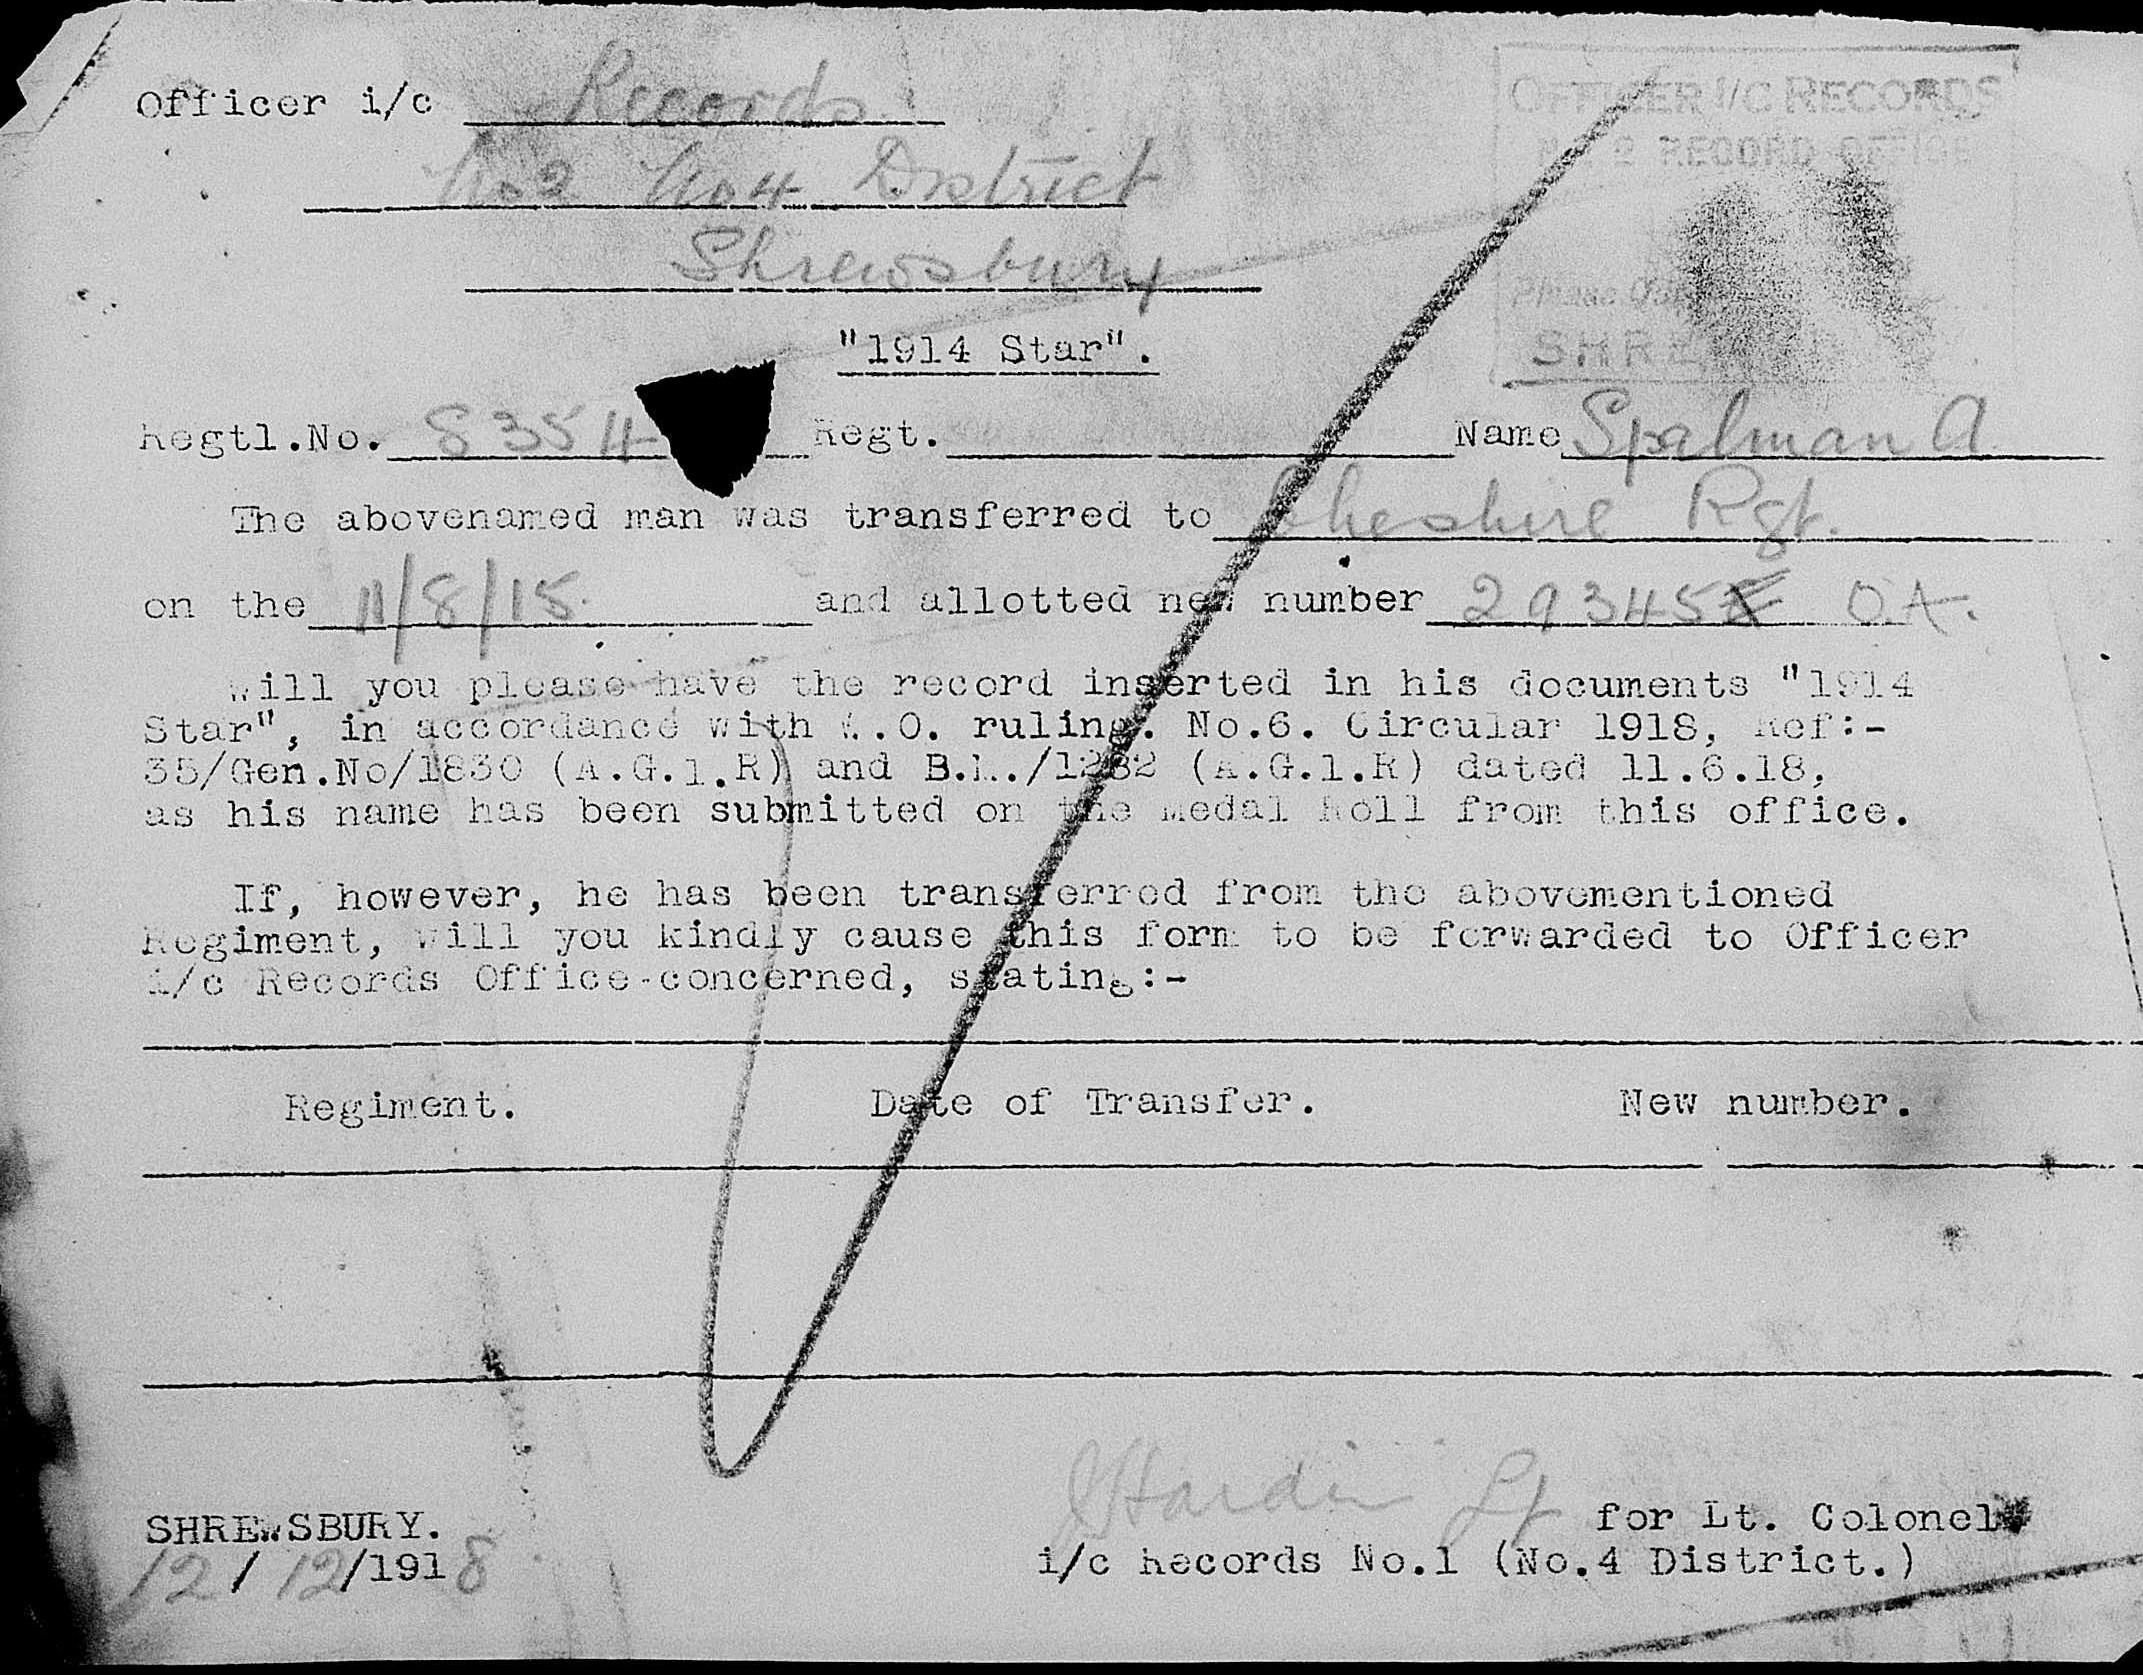 Officer i/c Records
OFFICER I/C RECORDS
No 2 No 4 District
No 2 RECORD OFFICE
Shrewsbury
Please
"1914 Star".
SHRE
Regtl.No. 8354 Regt. Name Spalman A
The abovenamed man was transferred to Cheshire Rgt.
on the 11/8/15. and allotted new number 29345 OA.
Will you please have the record inserted in his documents "1914
Star", in accordance with W.O. ruling. No.6. Circular 1918, Ref:-
35/Gen.No/1830 (A.G.1.R) and B.M./1282 (A.G.1.R) dated 11.6.18,
as his name has been submitted on the Medal Roll from this office.
If, however, he has been transferred from the abovementioned
Regiment, will you kindly cause this form to be forwarded to Officer
i/c Records Office-concerned, stating:-
Regiment. Date of Transfer. New number.
Lt for Lt. Colonel
SHREWSBURY.
i/c Records No.1 (No.4 District.)
12/12/1918